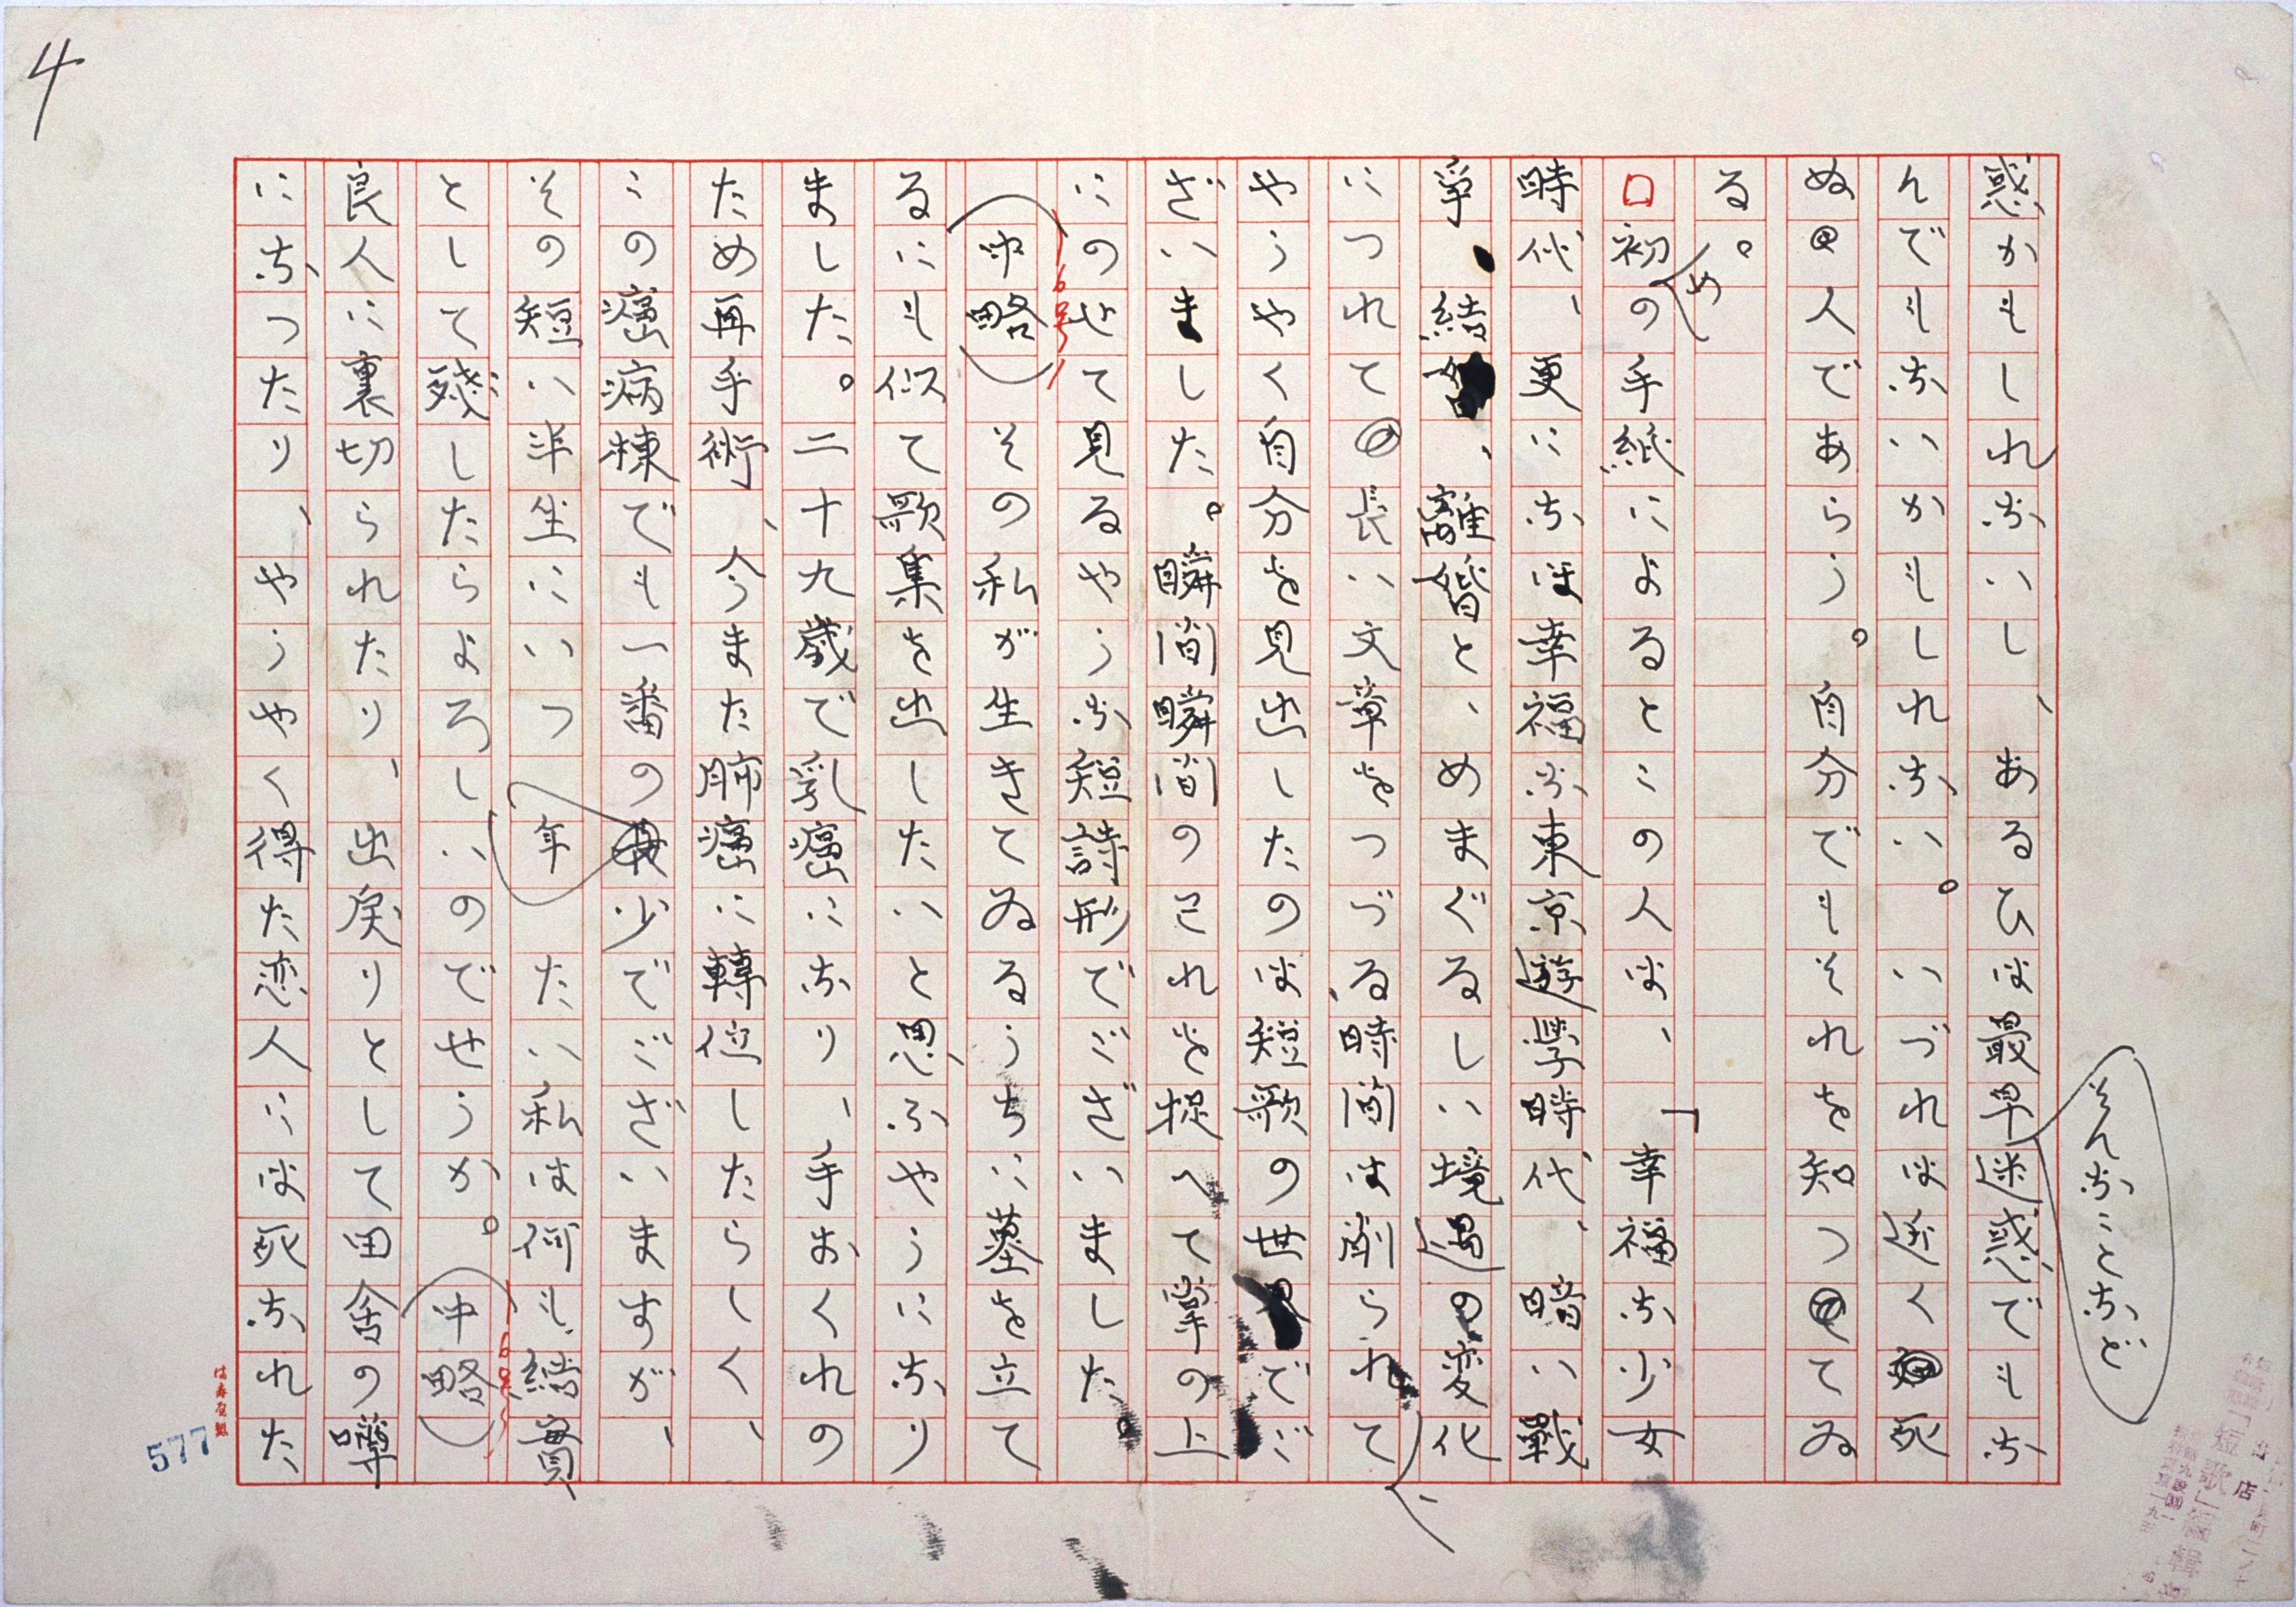 4
惑かもしれないし、あるひは最早そんなことなど迷惑でもな
んでもないかもしれない。いづれは全く死
ぬ人であらう。自分でもそれを知つてゐ
る。
□初めの手紙によるとこの人は、「幸福な少女
時代、更になほ幸福な東京遊學時代、暗い戰
爭、結婚、離婚と、めまぐるしい境遇の変化
につれて長い文章をつづる時間は削られて、
やうやく自分を見出したのは短歌の世界でご
ざいました。瞬間瞬間の己れを捉へて掌の上
にのせて見るやうな短詩形でございました。
(中略)その私が生きてゐるうちに墓を立て
るにも似て歌集を出したいと思ふやうになり
ました。二十九歳で乳癌になり、手おくれの
ため再手術、今また肺癌に轉位したらしく、
この癌病棟でも一番の年少でございますが、
その短い半生にいつたい私は何を結實
として殘したらよろしいのでせうか。(中略)
良人に裏切られたり、出戻りとして田舎の噂
になつたり、やうやく得た恋人には死なれた
577